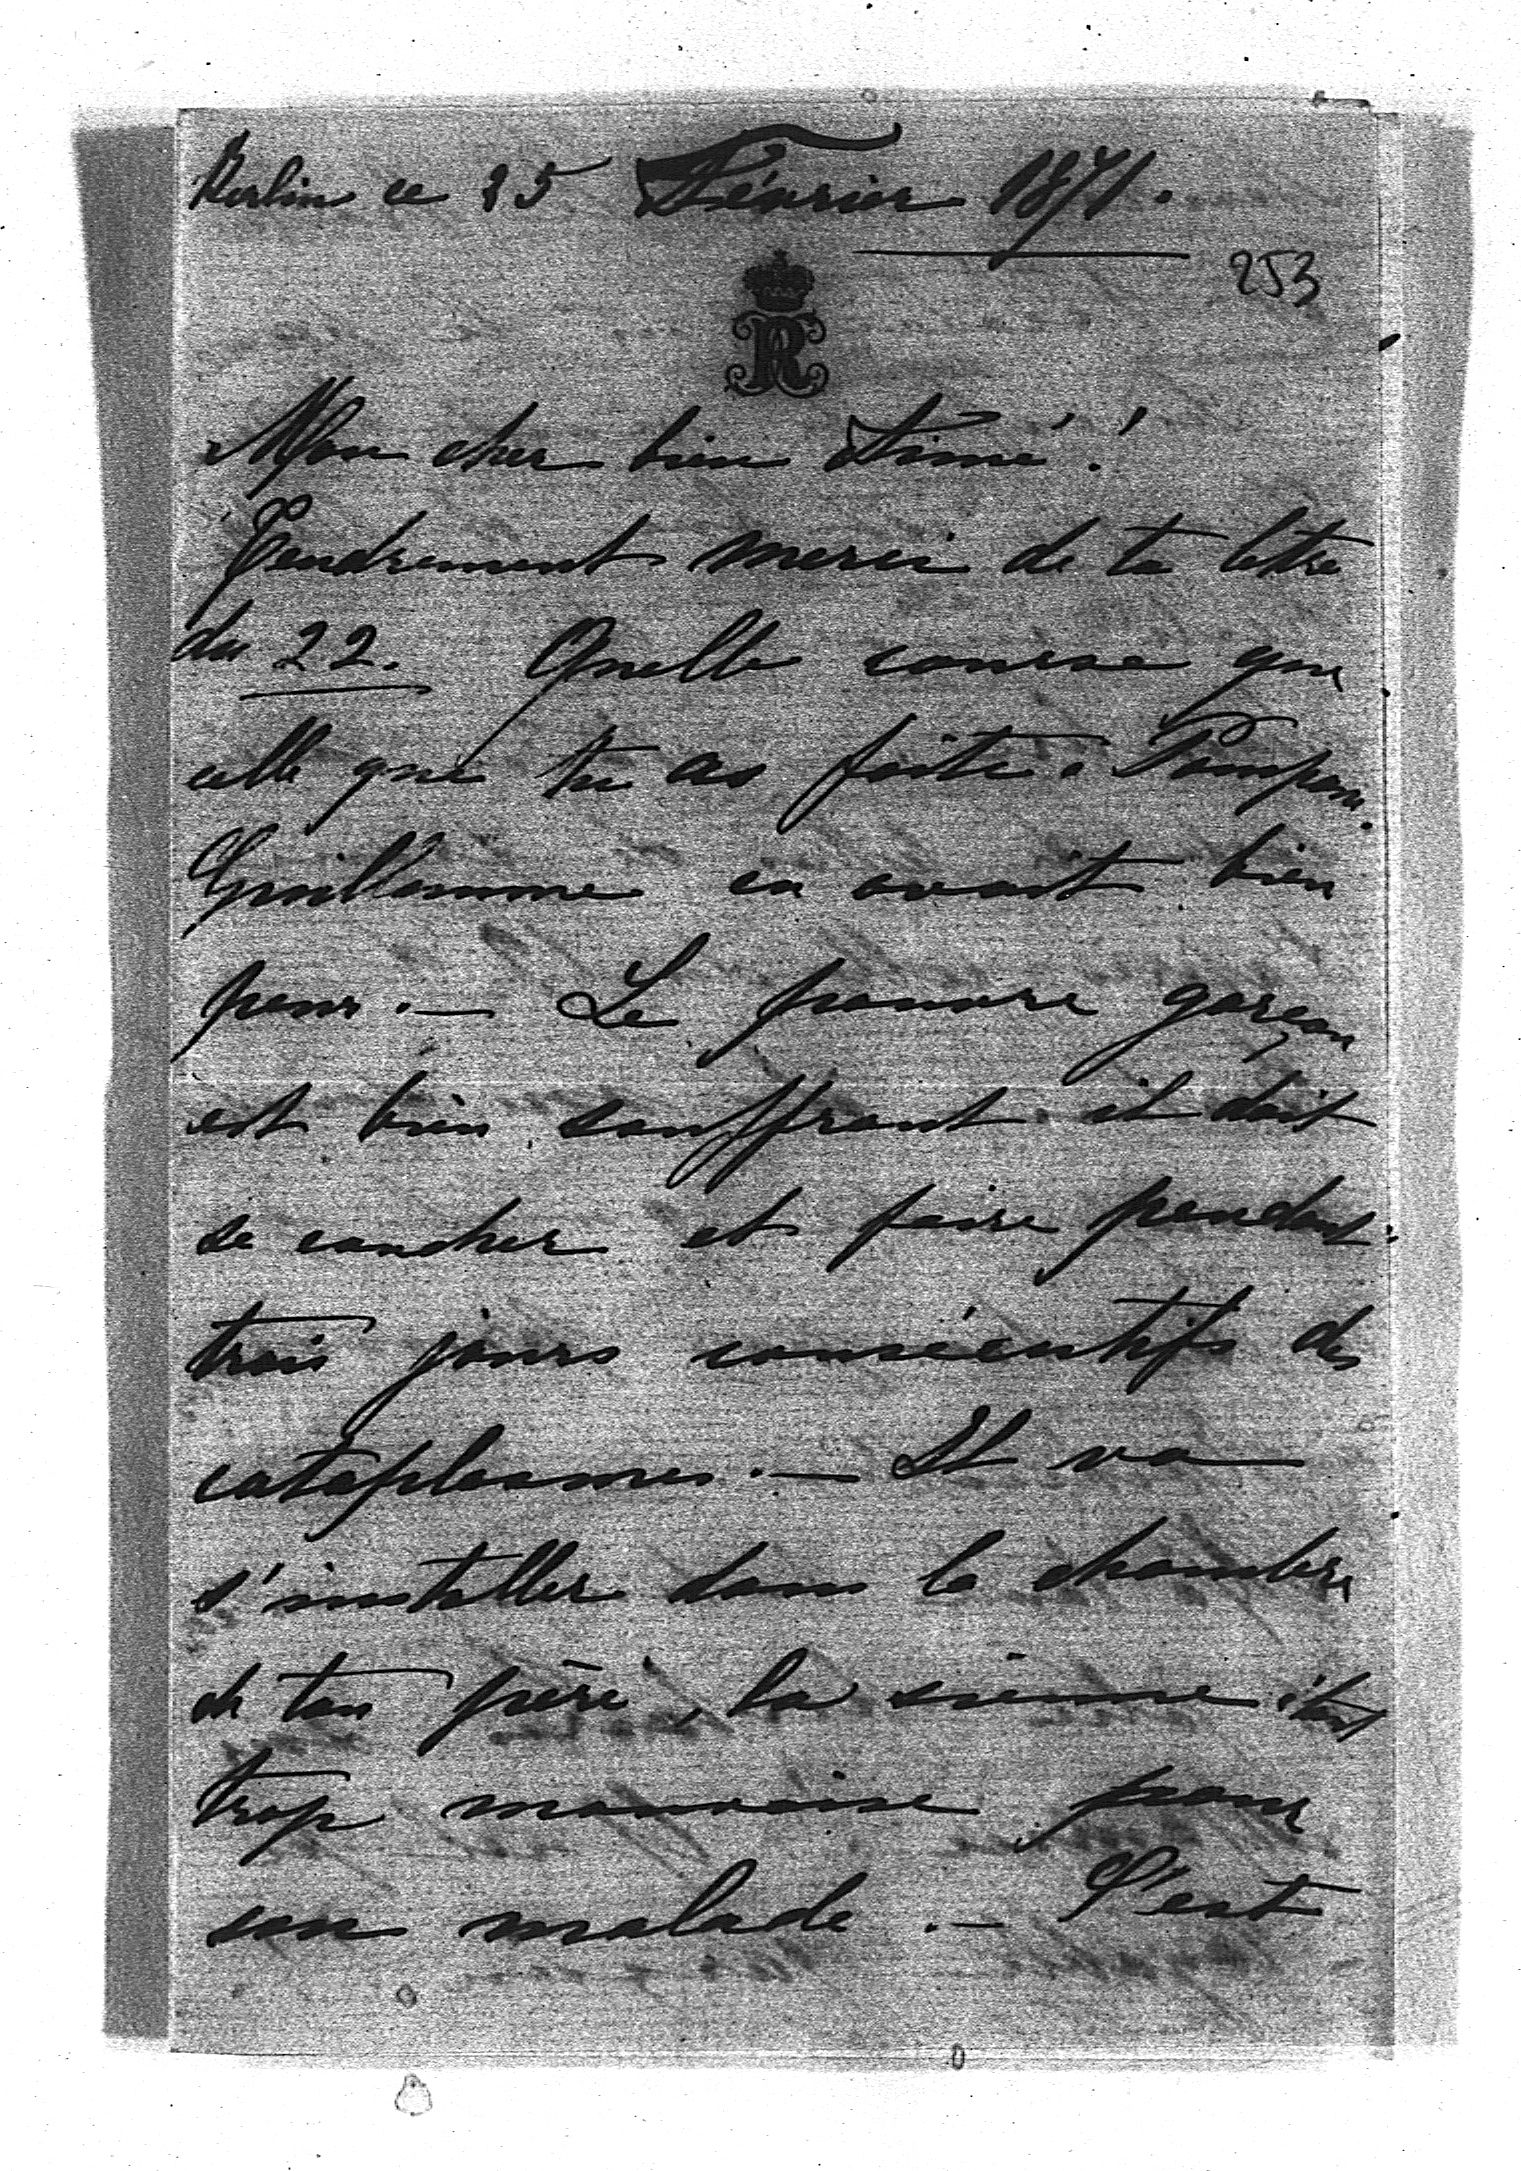 Berlin ce 25 Février 1871.
253
Mon cher bien Aimé!
Tendrement merci de ta lettre
du 22. Quelle course que
celle que tu as faite.
Guillaume en avait bien
peur. — Le pauvre garçon
est bien souffrant il doit
se coucher et faire pendant
trois jours consécutifs des
cataplasmes. — Il va
s'installer dans la chambre
de ton père, la sienne étant
trop mauvaise pour
un malade. — C'est